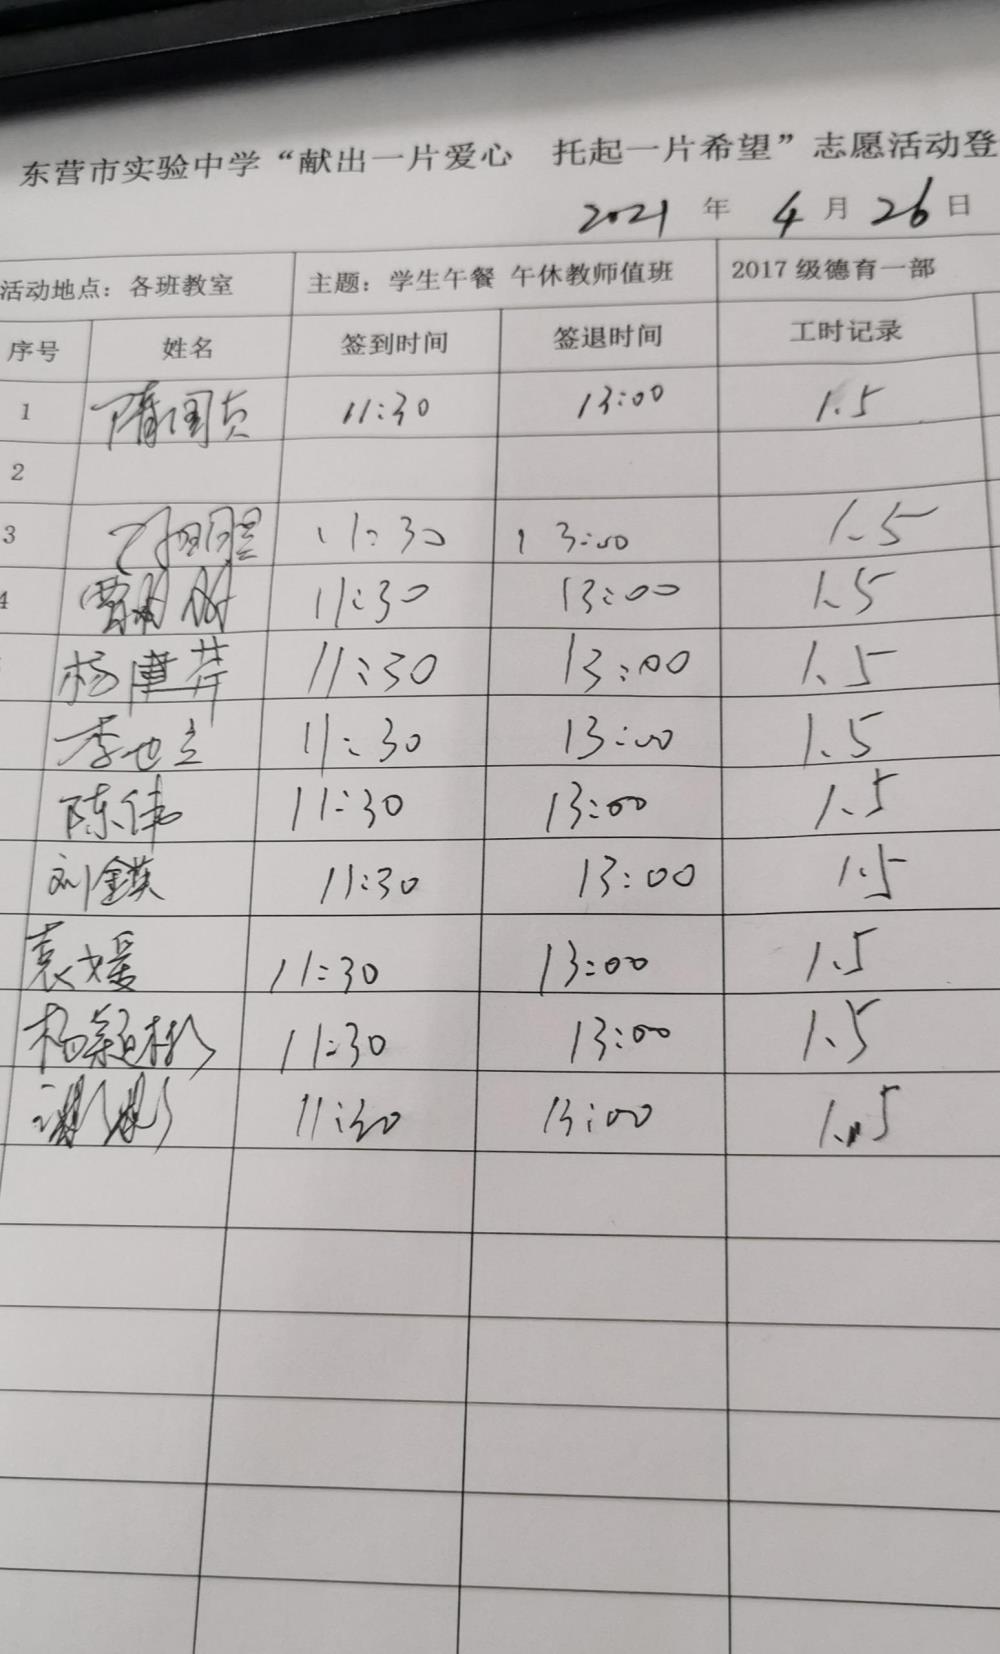 东营市实验中学“献出一片爱心 托起一片希望”志愿活动登
2021 年 4 月 26 日
活动地点：各班教室 主题：学生午餐 午休教师值班 2017 级德育一部
序号 姓名 签到时间 签退时间 工时记录
1 隋国贞 11:30 13:00 1.5
2
3 11:30 13:00 1.5
4 11:30 13:00 1.5
杨 11:30 13:00 1.5
李世立 11:30 13:00 1.5
陈伟 11:30 13:00 1.5
刘镁 11:30 13:00 1.5
袁媛 11:30 13:00 1.5
杨颖彬 11:30 13:00 1.5
11:30 13:00 1.5